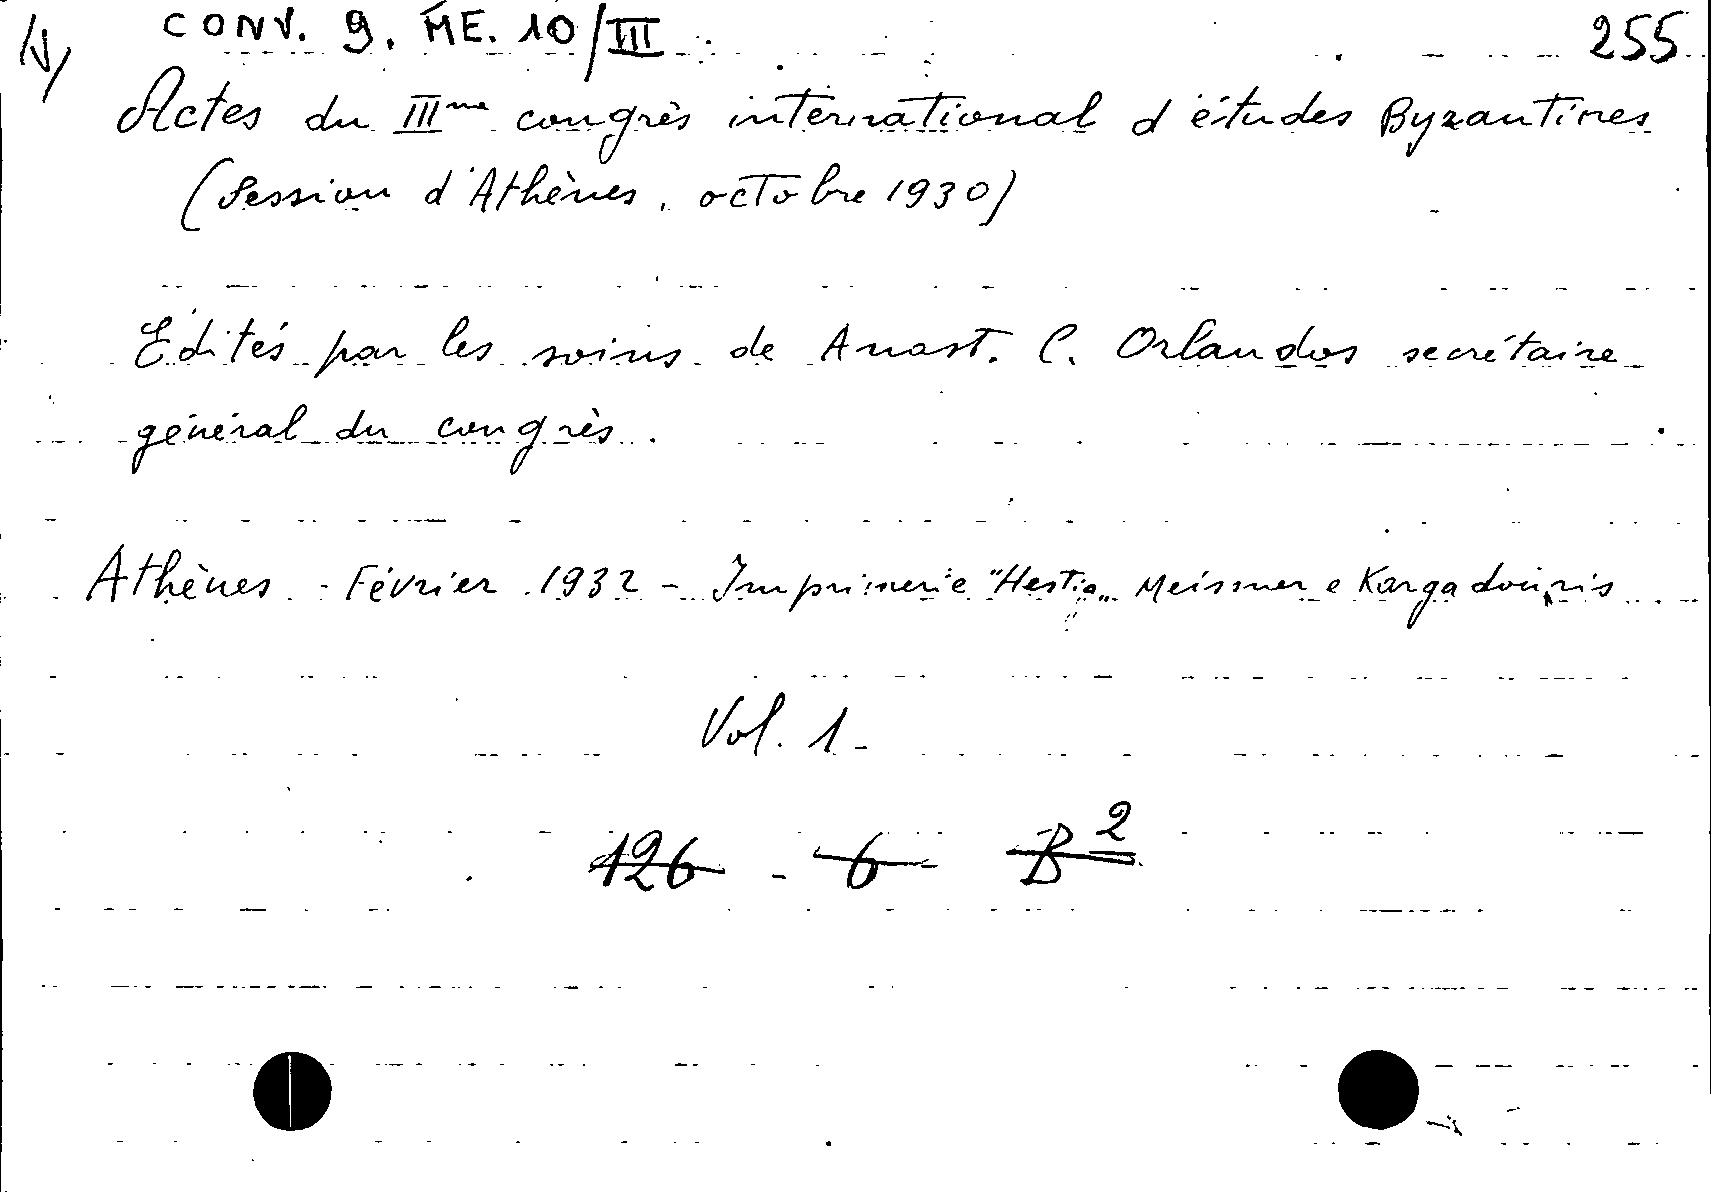 CONV. 9. ME. 10/III 255
Actes du IIIme congrès international d'études Byzantines
(Session d'Athènes, octobre 1930)
Edités par les soins de Anast. C. Orlandos secrétaire
général du congrès.
Athènes - Février 1932 - Imprimerie "Hestia" Meissner e Kargadouris
Vol. 1
126 - 6 B2